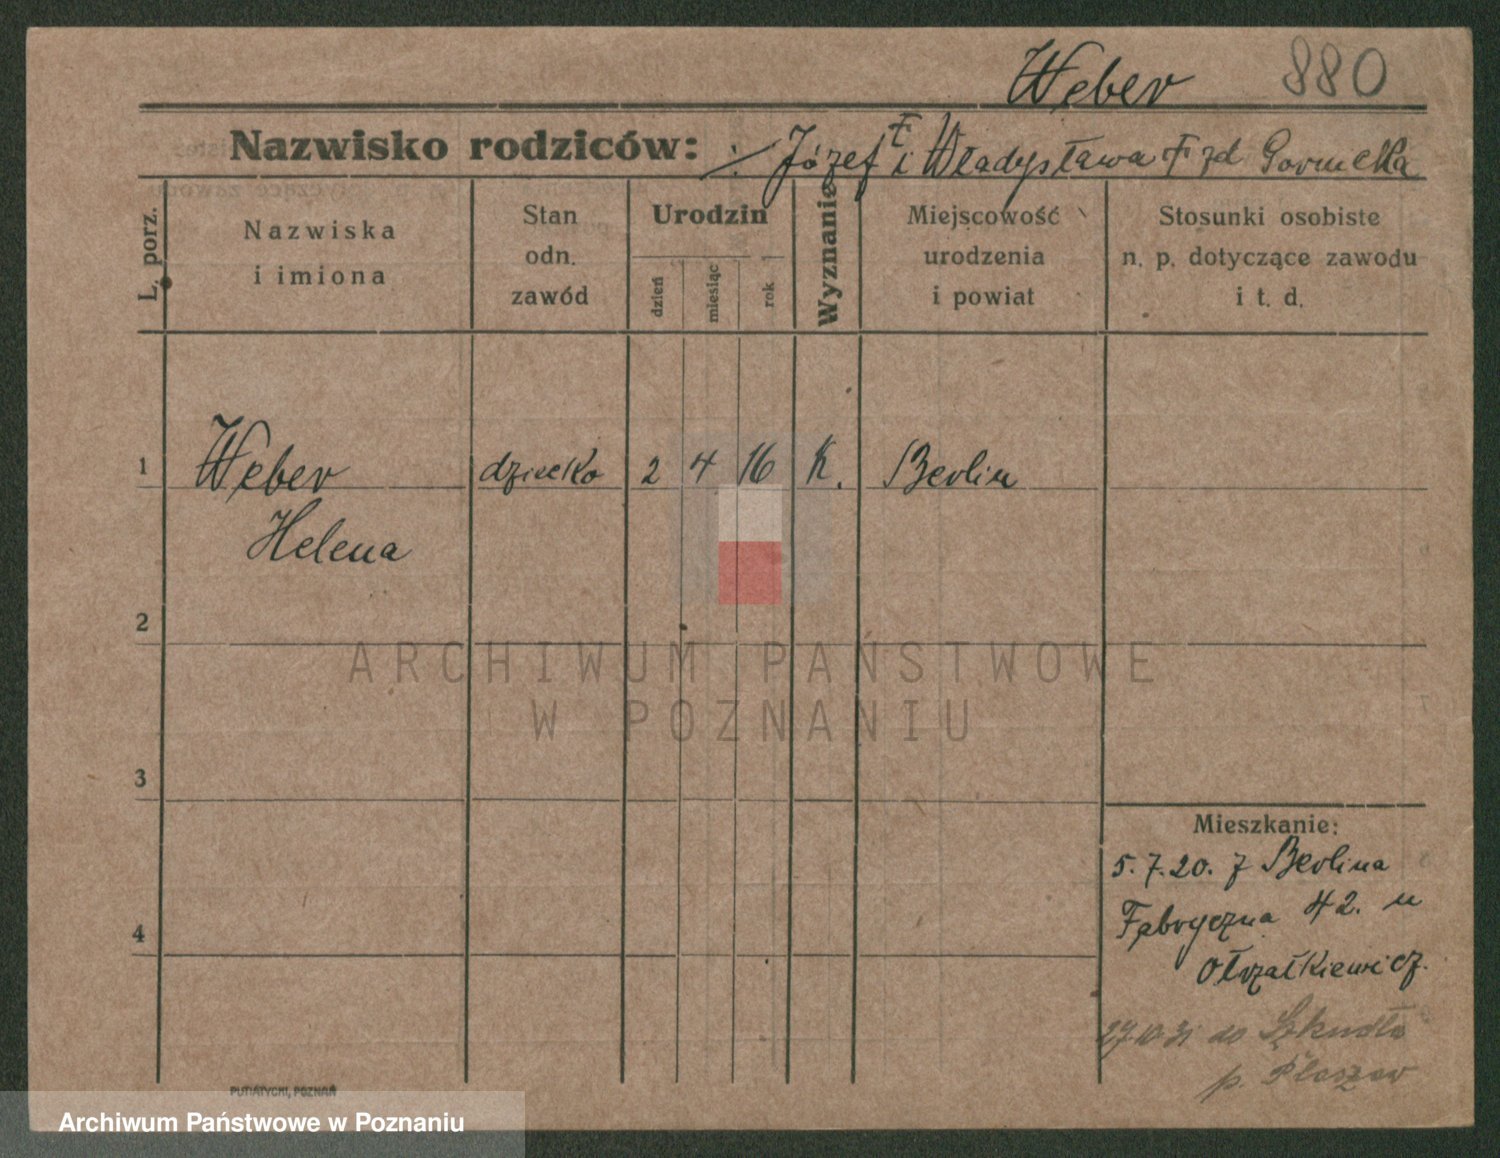 Weber 880
Nazwisko rodziców: ./. Józef † i Władysława † zd Gorucka
L. porz.
Nazwiska
i imiona
Stan
odn.
zawód
Urodzin
dzień
miesiąc
rok
Wyznanie
Miejscowość
urodzenia
i powiat
Stosunki osobiste
n. p. dotyczące zawodu
i t. d.
1 Weber dziecko 2 4 16 K. Berlin
Helena
2
3
4
Mieszkanie:
5.7.20. z Berlina
Fabryczna 42. u
27.10.31 do Szkudła
p. Płeszew
PUTIATYCKI, POZNAŃ
ARCHIWUM PAŃSTWOWE
W POZNANIU
Archiwum Państwowe w Poznaniu